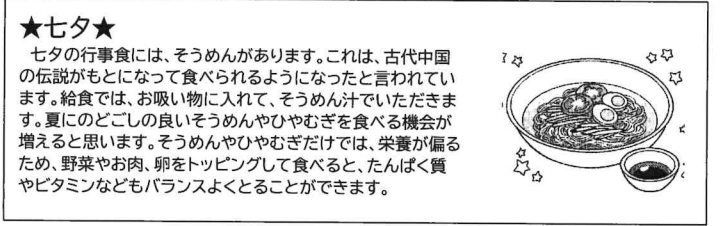 ★七夕★
七夕の行事食には、そうめんがあります。これは、古代中国
の伝説がもとになって食べられるようになったと言われてい
ます。給食では、お吸い物に入れて、そうめん汁でいただきま
す。夏にのどごしの良いそうめんやひやむぎを食べる機会が
増えると思います。そうめんやひやむぎだけでは、栄養が偏る
ため、野菜やお肉、卵をトッピングして食べると、たんぱく質
やビタミンなどもバランスよくとることができます。